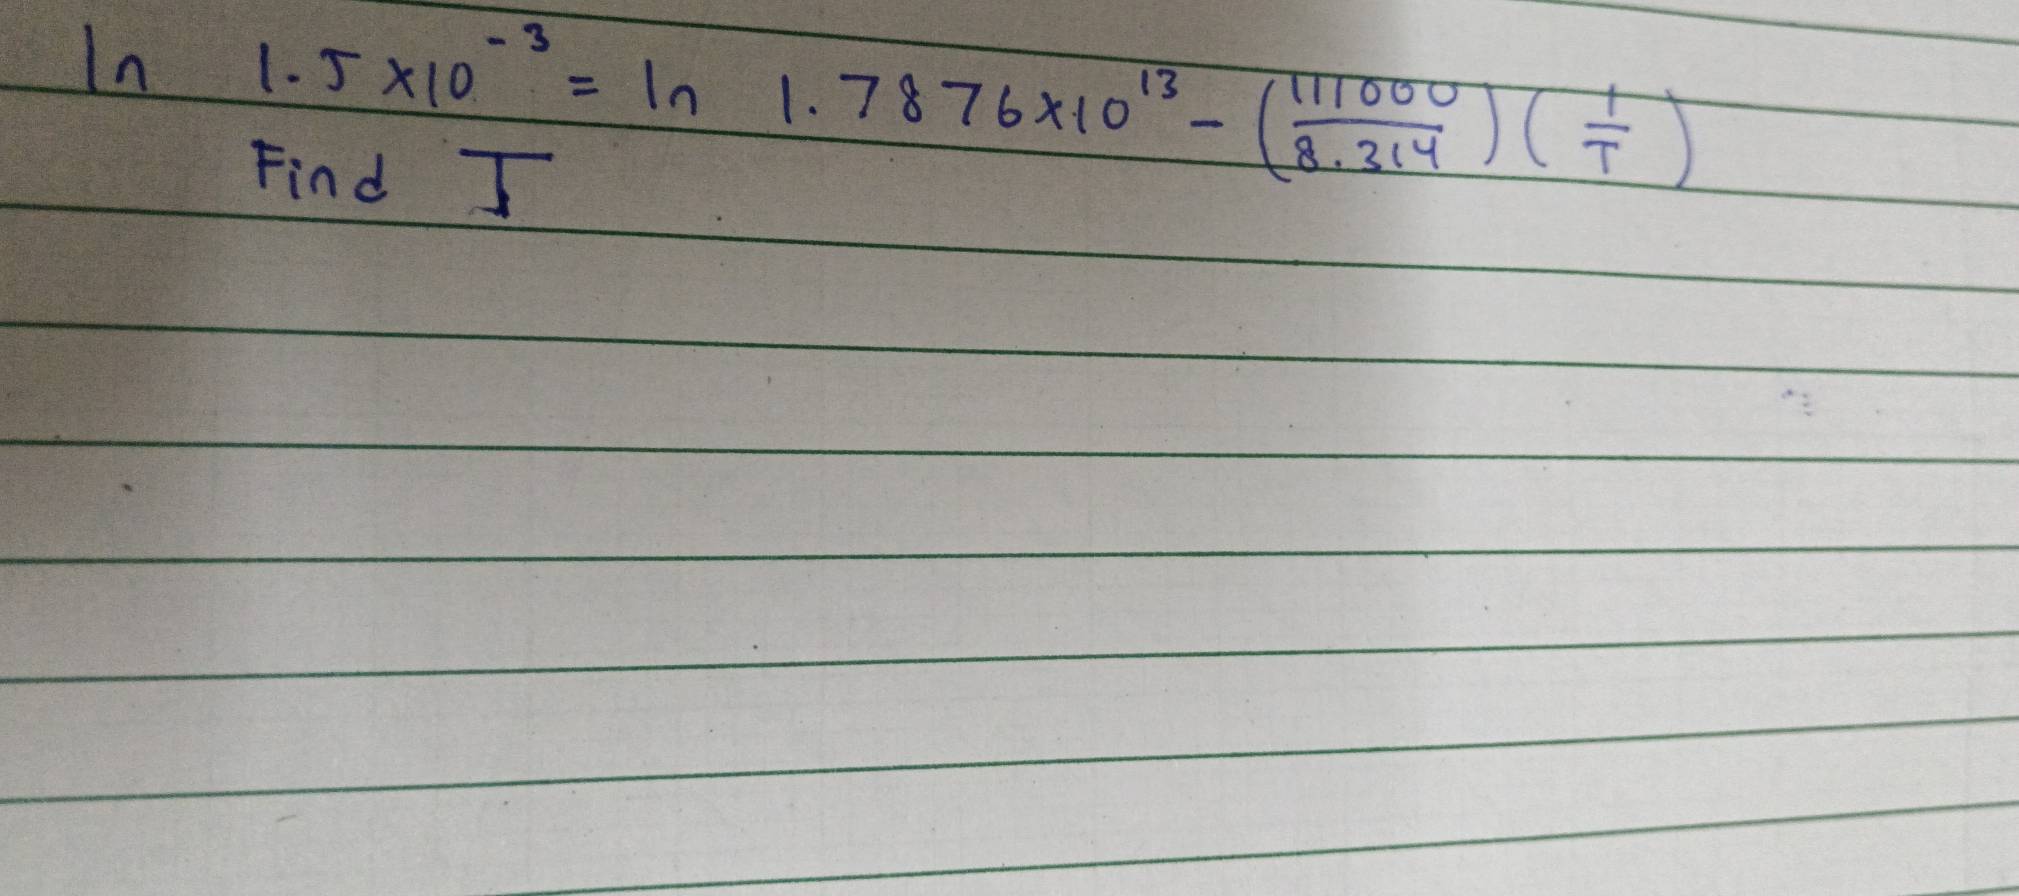 ln 1.5×10⁻³ = ln 1.7876×10¹³ - (111000/8.314)(1/T)
Find T